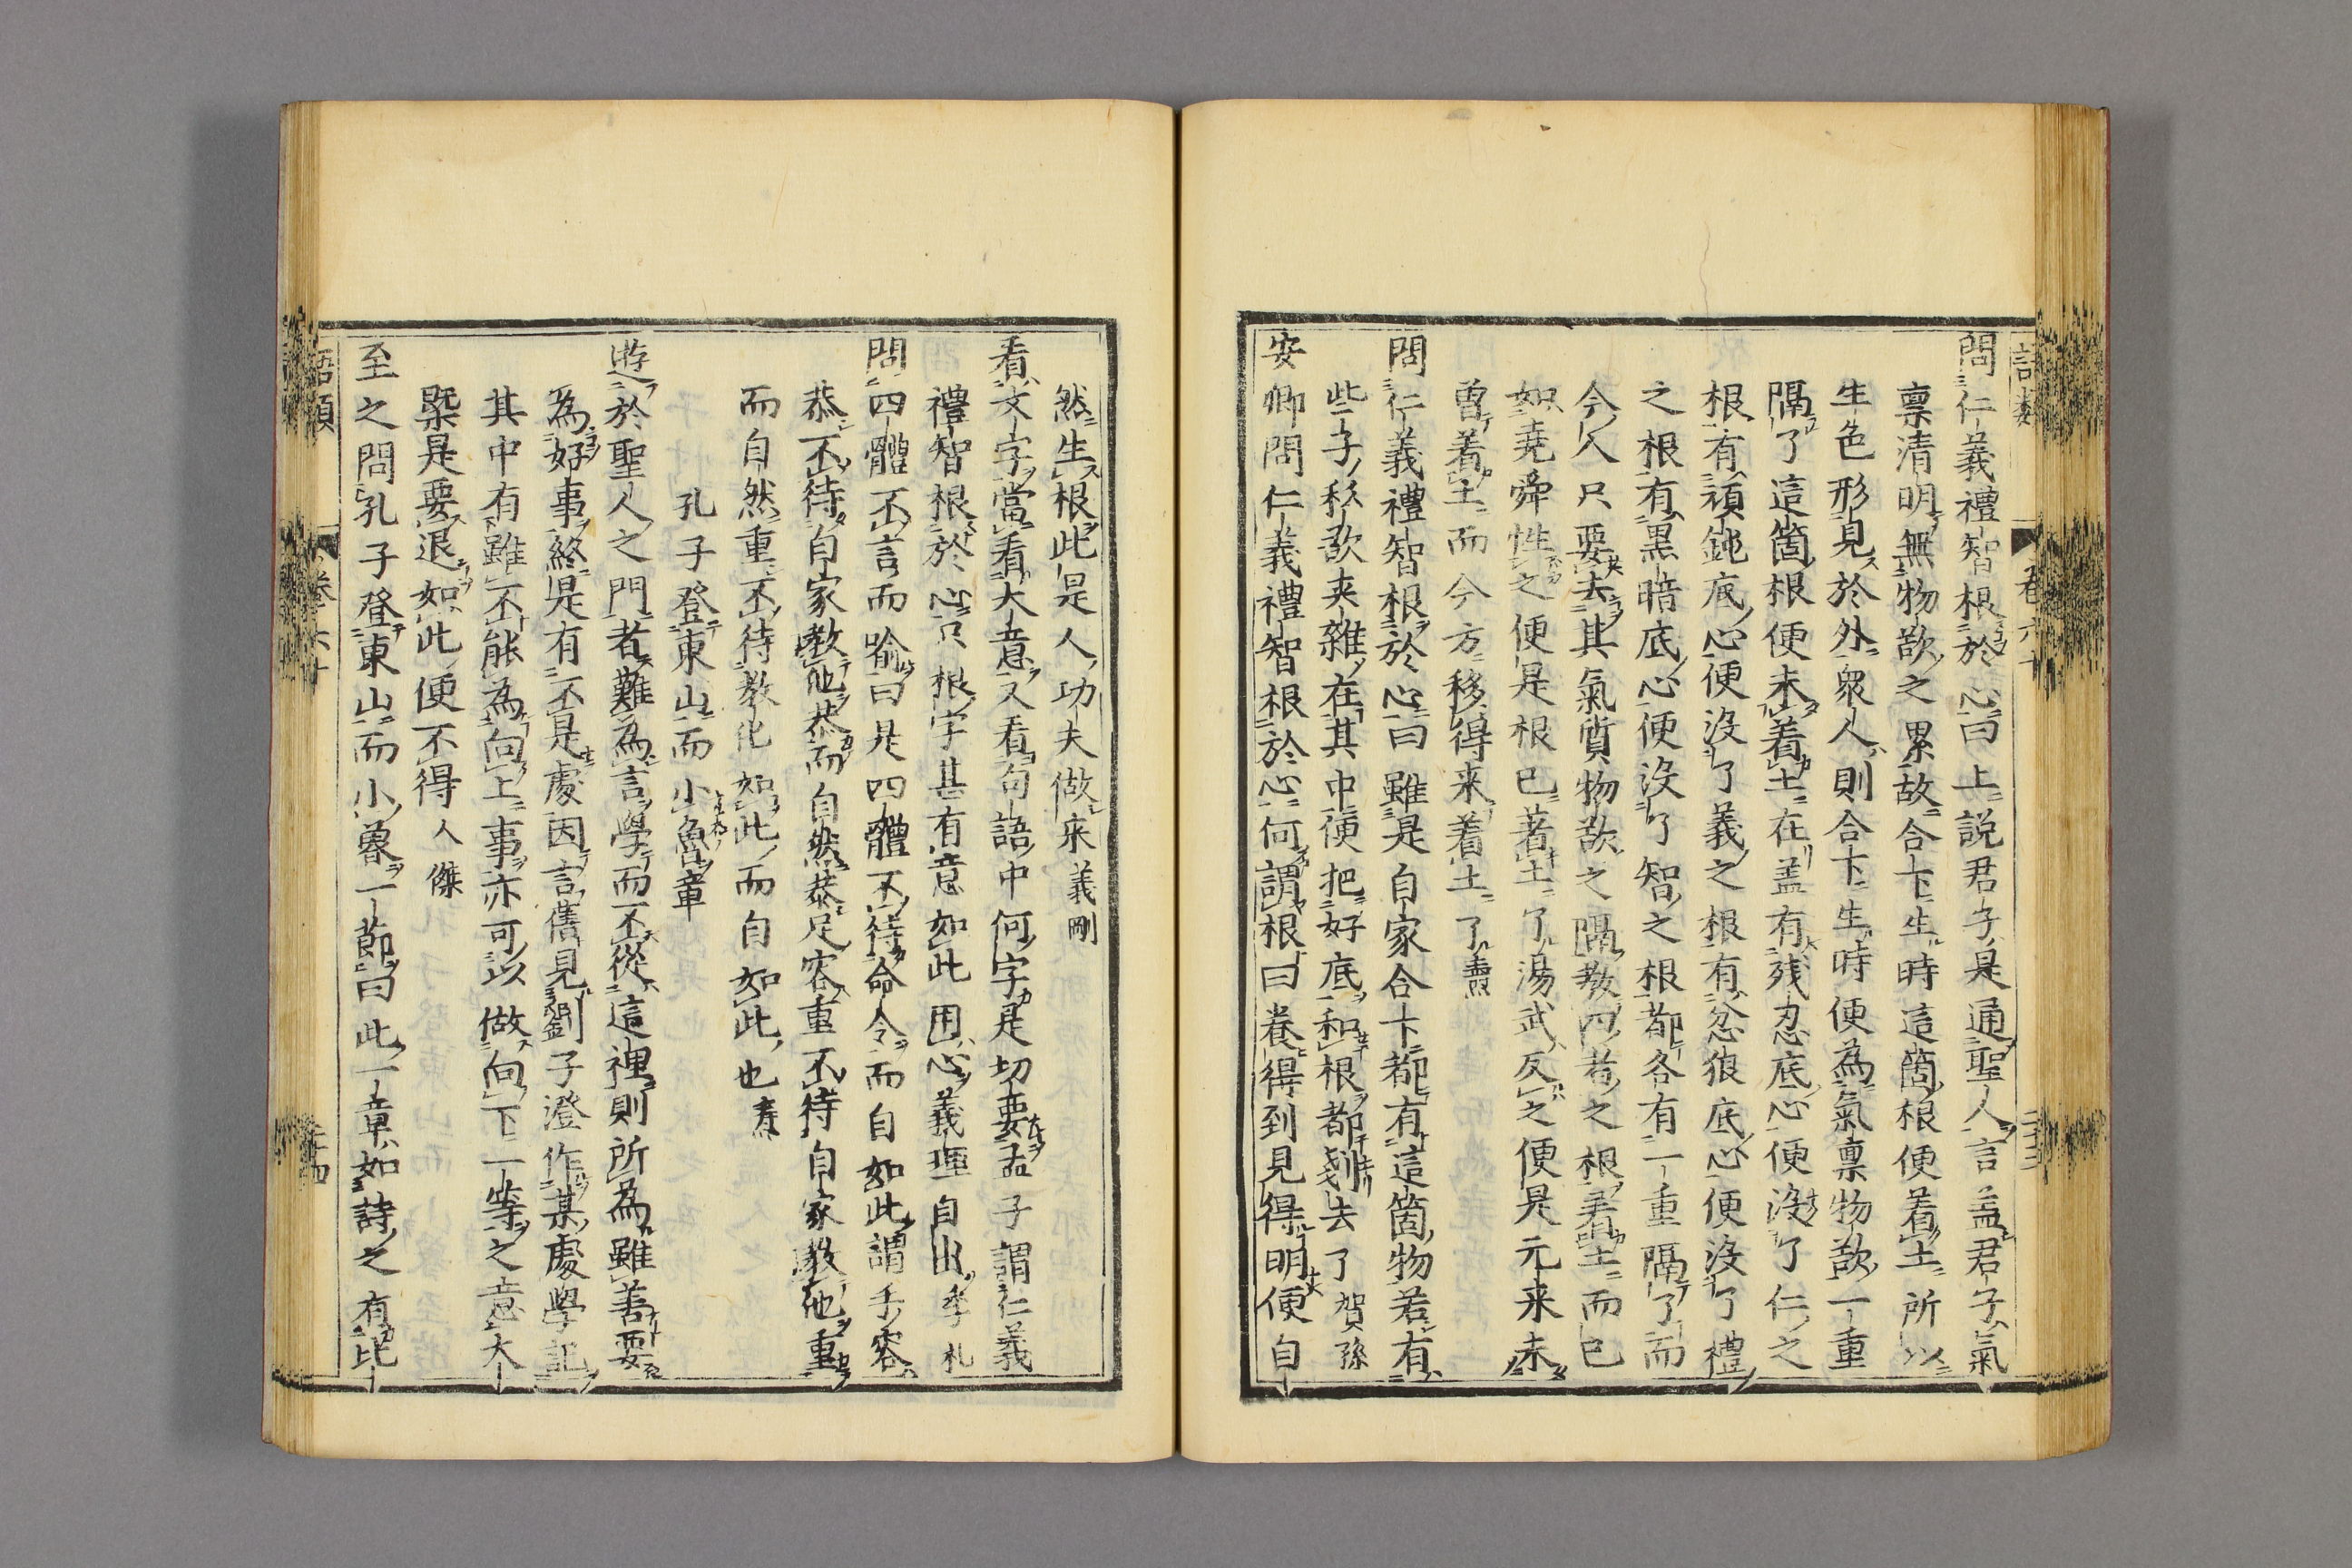 語類 卷六十 二十三
問仁義禮智根於心曰上說君子是通聖人言盖君子氣
稟清明無物欲之累故合下生時這箇根便着土所以
生色形見於外衆人則合下生時便為氣稟物欲一重
隔了這箇根便未着土在盖有殘忍底心便沒了仁之
根有頑鈍底心便沒了義之根有忿狠底心便沒了禮
之根有黑暗底心便沒了智之根都各有一重隔了而
今人只要去其氣質物欲之隔教四者之根着土而已
如堯舜性之便是根已著土了湯武反之便是元来未
曽着土而今方移得来着土了燾
問仁義禮智根於心曰雖是自家合下都有這箇物若有
些子私欲夹雜在其中便把好底和根都剗去了賀孫
安卿問仁義禮智根於心何謂根曰養得到見得明便自
然生根此是人功夫做来義剛
看文字當看大意又看句語中何字是切要孟子謂仁義
禮智根於心只根字甚有意如此用心義理自出季札
問四體不言而喻曰是四體不待命令而自如此謂手容
恭不待自家教他恭而自然恭足容重不待自家教他重
而自然重不待教化如此而自如此也燾
孔子登東山而小魯章
遊於聖人之門者難為言學而不從這裡則所為雖善要
為好事終是有不是處因言舊見劉子澄作某處學記
其中有雖不能為向上事亦可以做向下一等之意大
槩是要退如此便不得人傑
至之問孔子登東山而小魯一節曰此一章如詩之有比
語類 卷六十 二十四